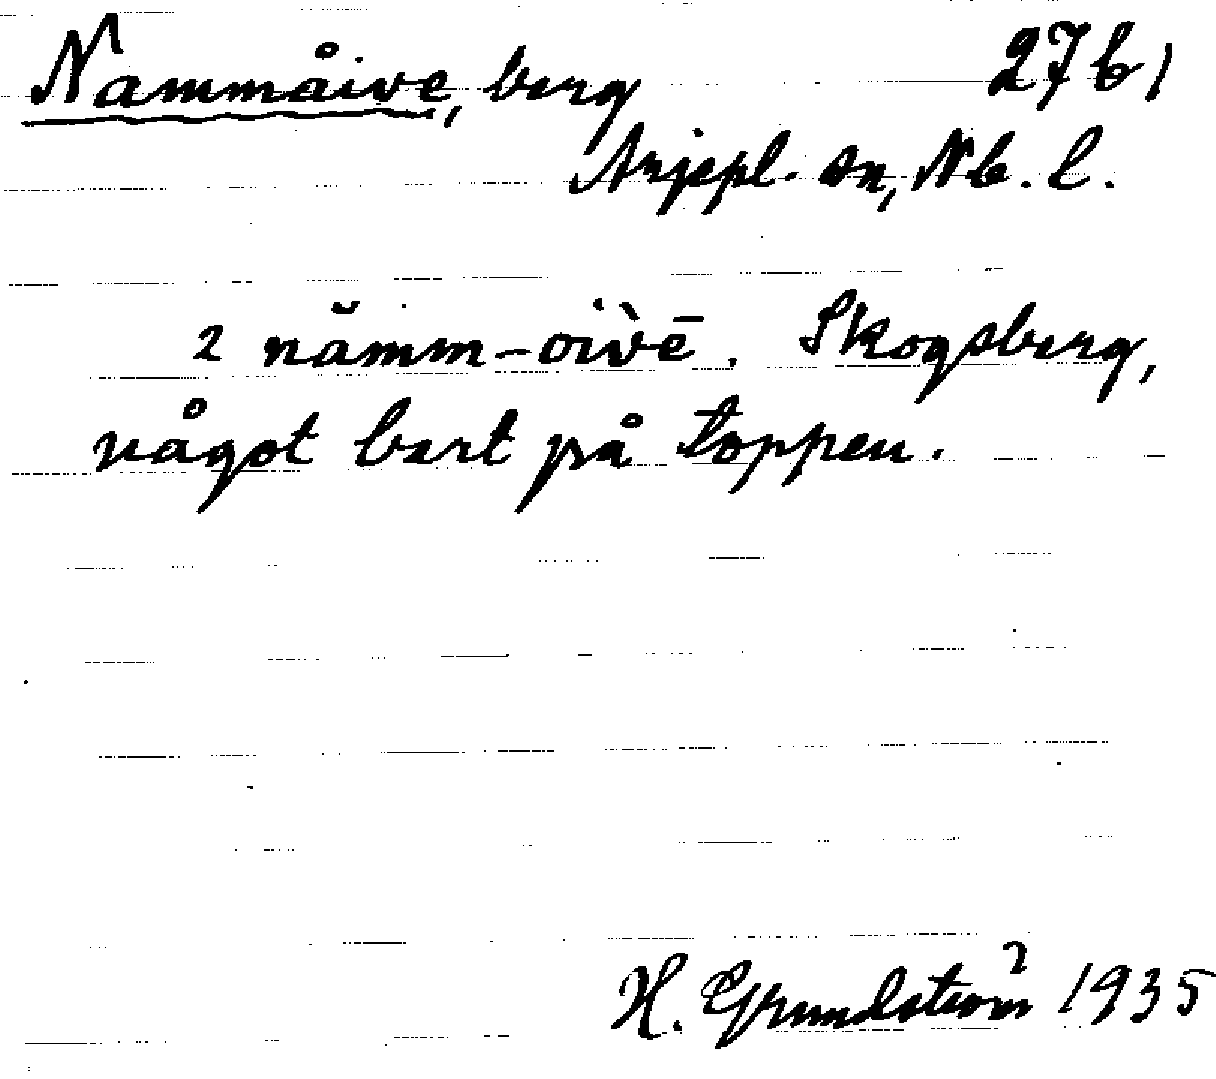 Nammåive, berg 27b1
Arjeppl. sn, Nb. l.
2 nămm-oi̇̀vē. Skogsberg,
något bart på toppen.
H. Grundström 1935